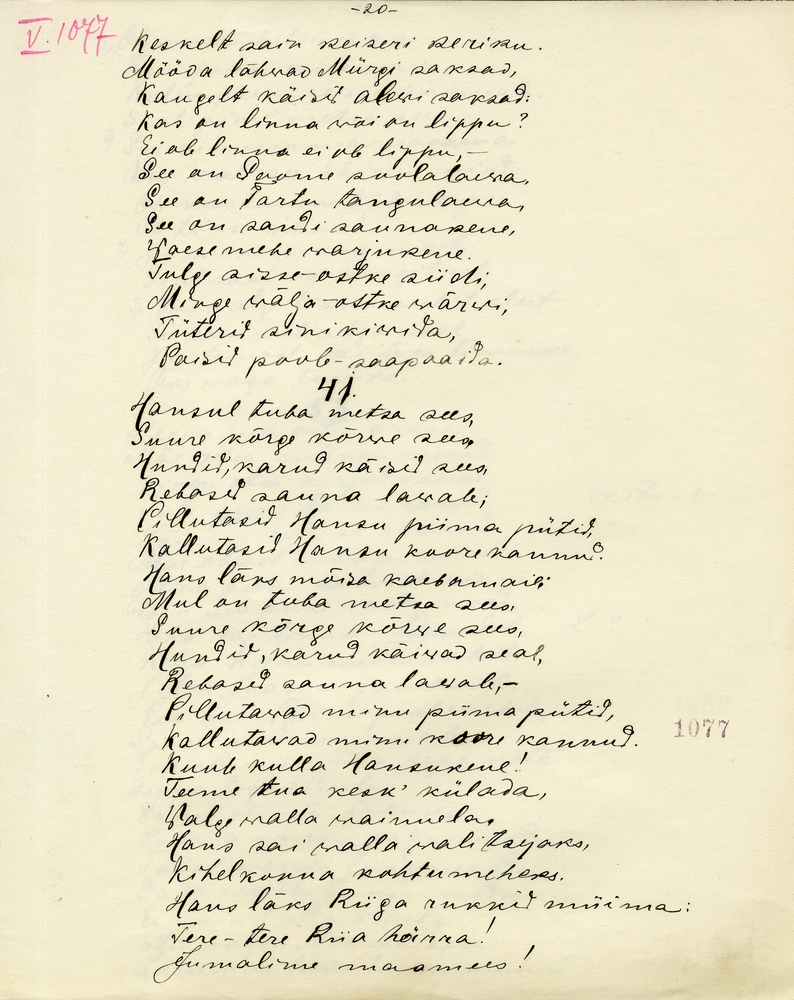 -20-
V. 1077
Keskelt sain keiseri keriku.
Mööda lähwad Mürgi saksad,
Kaugelt käisid alewi saksad:
Kas on linna wõi on lippu?
Ei ole linna ei ole lippu,-
See on Soome soolalaewa,
See on Tartu tangulaewa,
See on sandi saunakene,
Waesemehe warjukene.
Tulge sisse-ostke siidi,
Minge wälja-ostke wärwi,
Tüterid sinikiwida,
Poisid poole-saapaaida.
41.
Hansul tuba metsa sees,
Suure kõrge kõrwe sees,
Hundid, karud käisid sees,
Rebased sauna lawale;
Pillutasid Hansu piima pütid,
Kallutasid Hansu koore kannud.
Hans läks mõisa kaebamaie:
Mul on tuba metsa sees,
Suure kõrge kõrwe sees,
Hundid, karud käiwad seal,
Rebased sauna lawale,-
Pillutawad minu piima pütid,
Kallutawad minu koore kannud.
Kuule kulla Hansukene!
Teeme tua kesk' külada,
Walge walla wainuela.
Hans sai walla walitsejaks,
Kihelkonna kohtumeheks.
Hans läks Riiga rukkid müima:
Tere-tere Riia härra!
Jumalime maamees!
1077